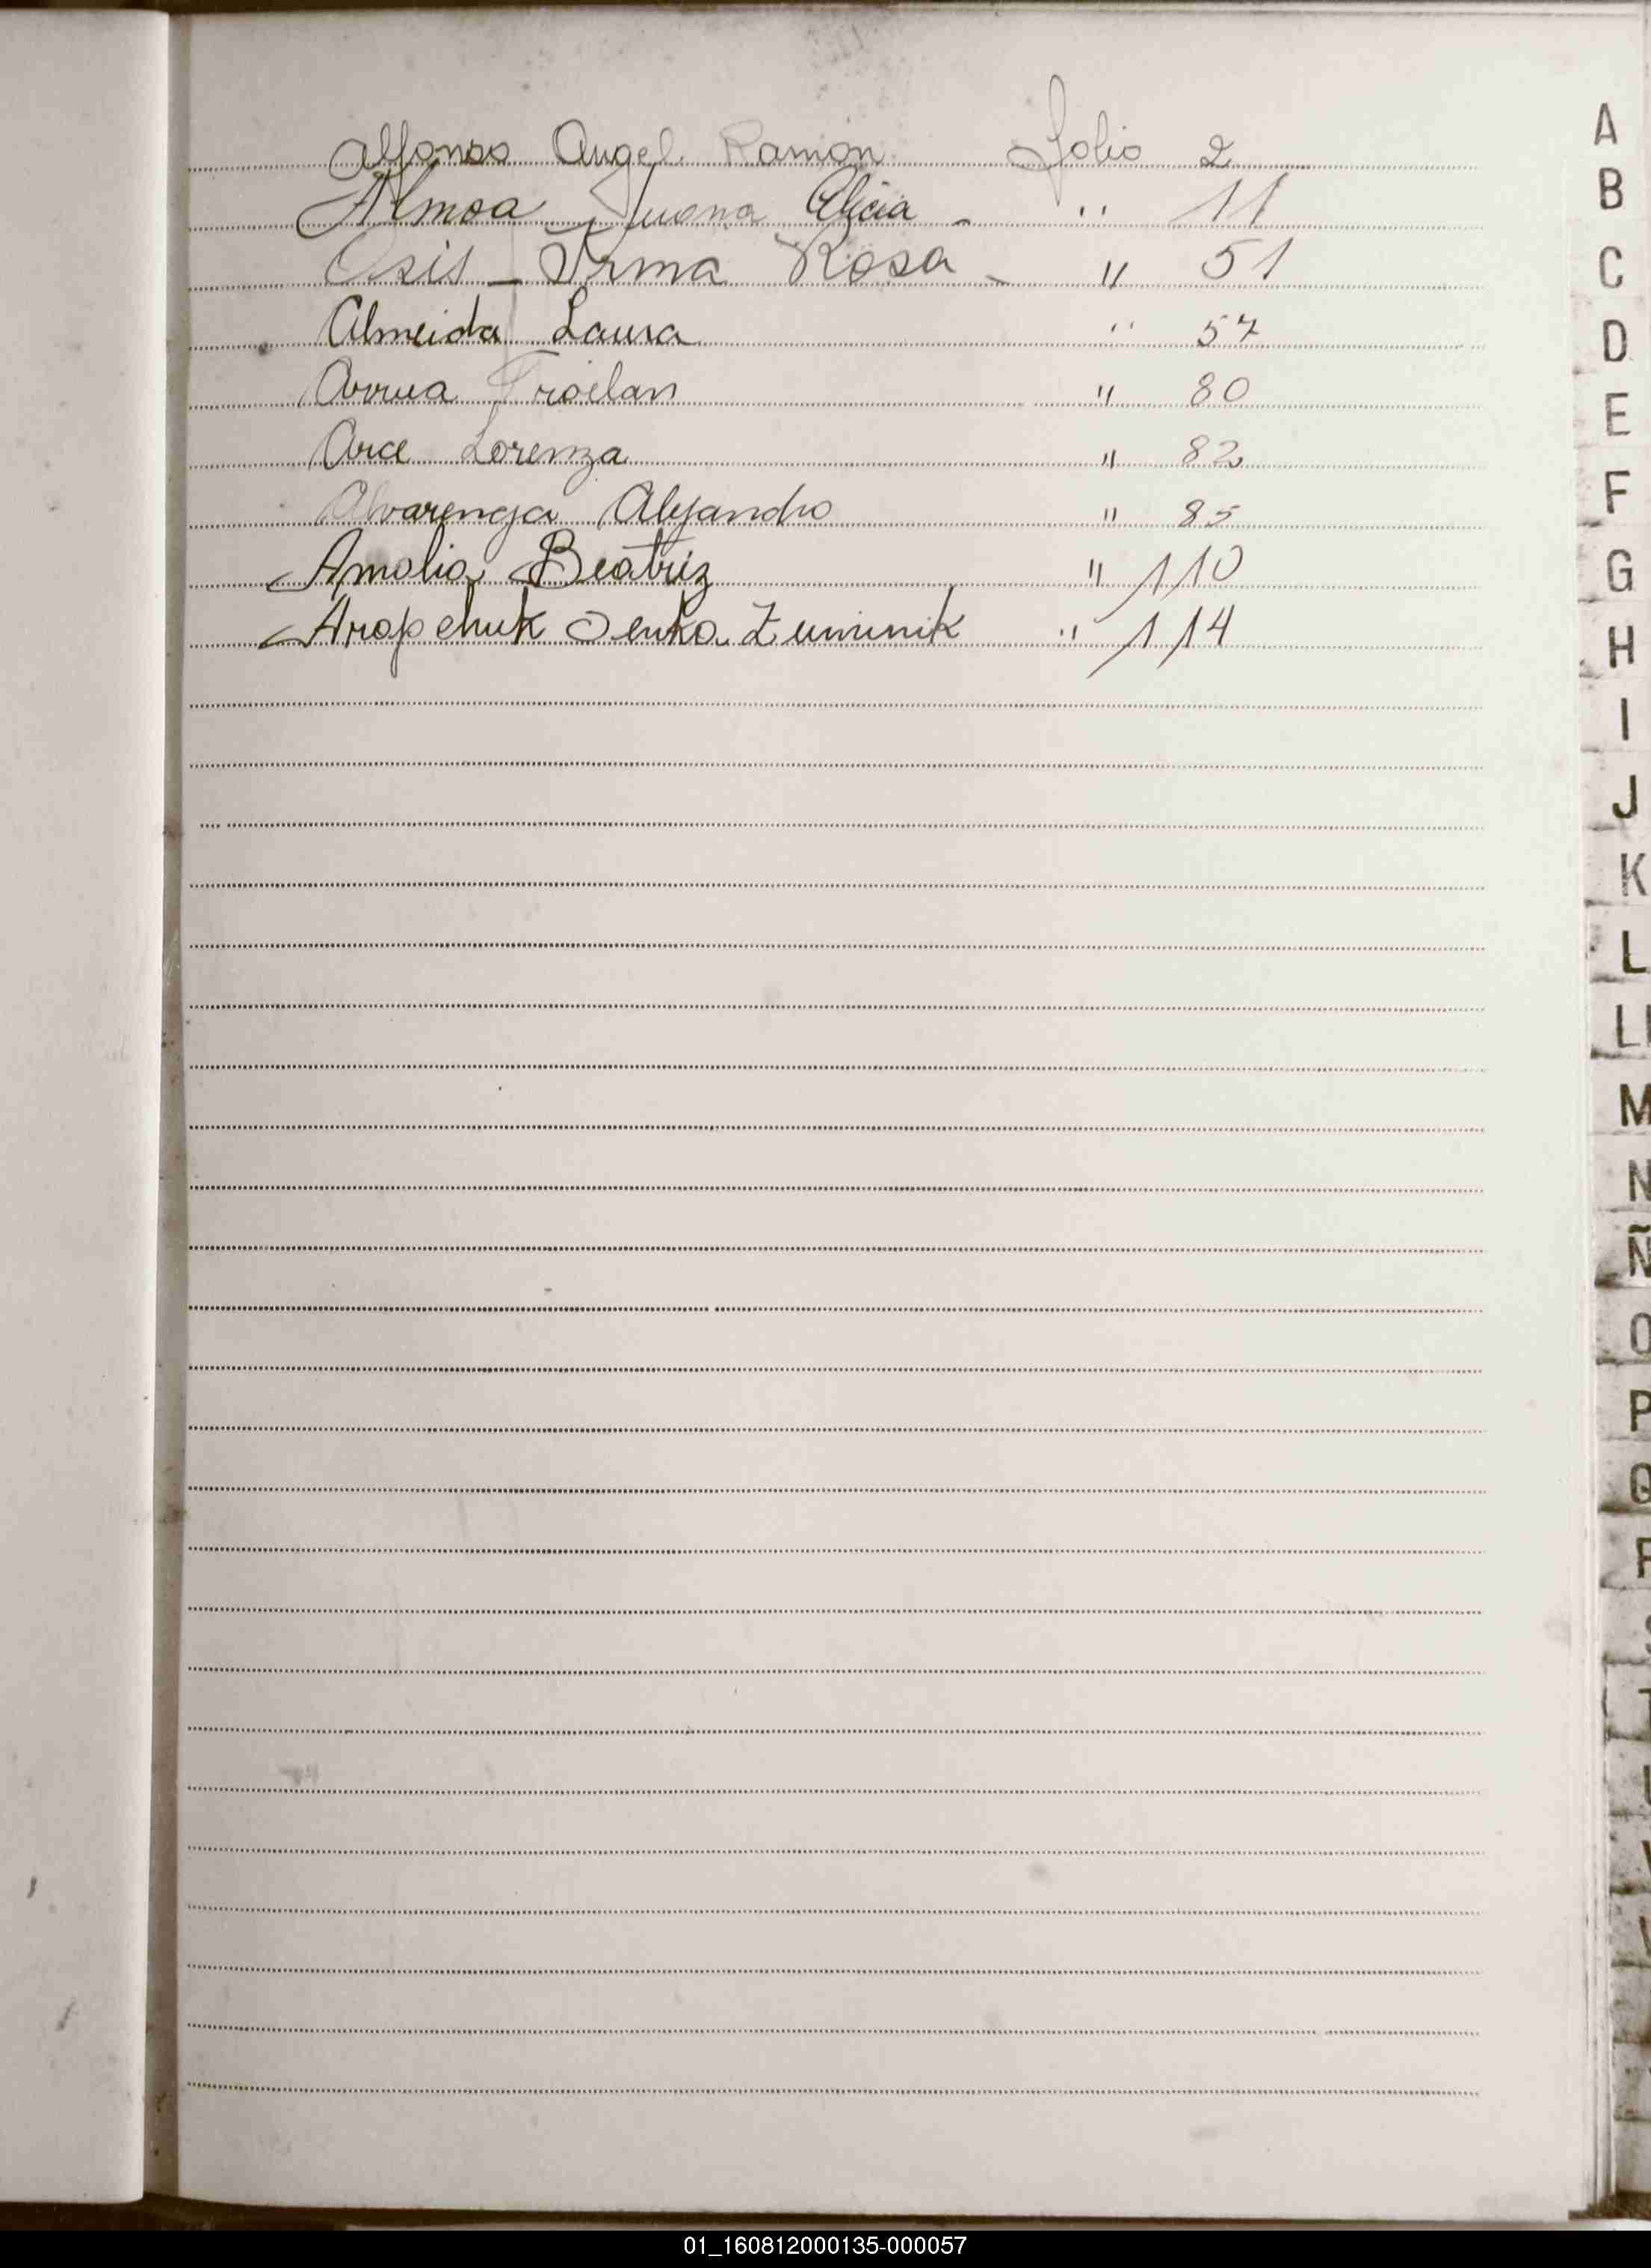 Alfonso Angel Ramón Folio 2
Almoa Juana Alicia - " 11
Asis - Irma Rosa - " 51
Almeida Laura " 57
Arrua Froilan " 80
Arce Lorenza " 82
Alvarenga Alejandro " 85
Amalia Beatriz " 110
Arapchuk Zuminik " 114
A
B
C
D
E
F
G
H
I
J
K
L
Ll
M
N
Ñ
O
P
Q
01_160812000135-000057